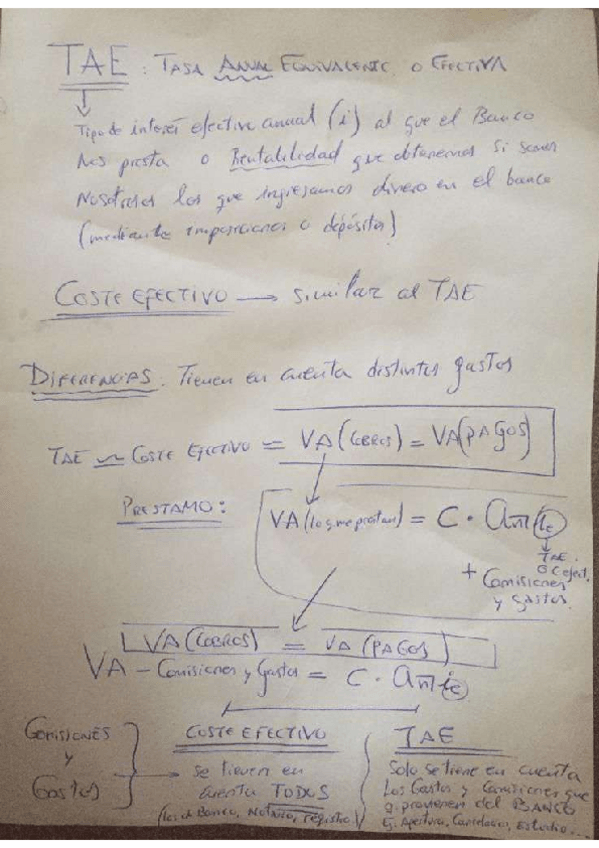 TAE : TASA ANUAL EQUIVALENTE O EFECTIVA
Tipo de interés efectivo anual (i) al que el Banco
Nos presta o Rentabilidad que obtenemos si somos
Nosotros los que ingresamos dinero en el banco
(mediante imposiciones o depósitos)
COSTE EFECTIVO → similar al TAE
DIFERENCIAS : Tienen en cuenta distintos gastos
TAE ≃ COSTE EFECTIVO = VA(COBROS) = VA(PAGOS)
PRESTAMO :
VA(los que prestan) = C · an┐ie
TAE
o C efect.
+ Comisiones
y gastos.
VA(COBROS) = VA(PAGOS)
VA - Comisiones y Gastos = C · an┐ie
COMISIONES
y
Gastos
COSTE EFECTIVO
se tienen en
cuenta TODOS
(los d Banco, Notario, registro)
TAE
Solo se tiene en cuenta
Los Gastos y Comisiones que
q provienen del BANCO
Ej. Apertura, Cancelación, Estudio...